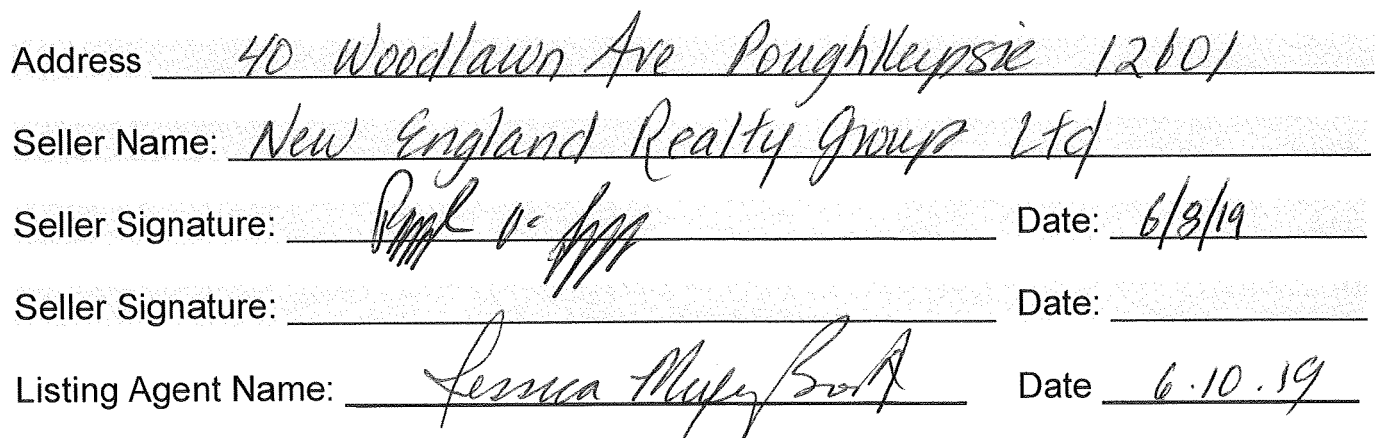 Address 40 Woodlawn Ave Poughkeepsie 12601
Seller Name: New England Realty Group Ltd
Seller Signature: Date: 6/8/19
Seller Signature: Date:
Listing Agent Name: Jessica Date 6.10.19